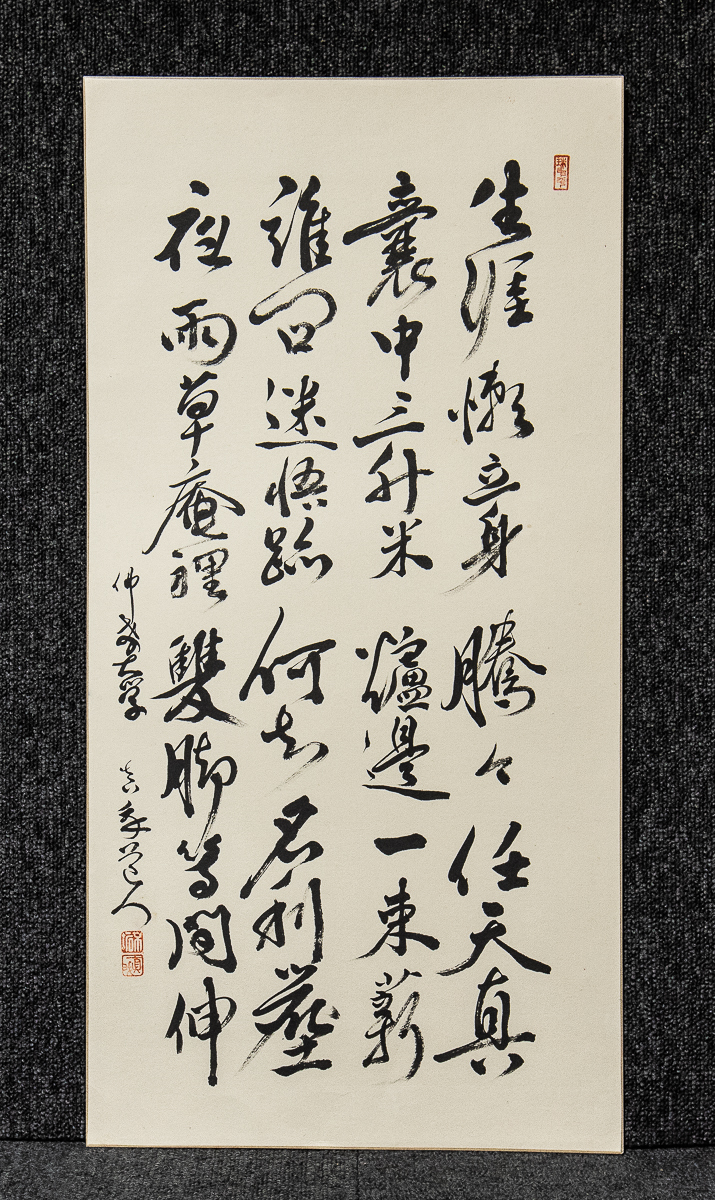 生涯懶立身騰々任天真
囊中三升米爐邊一束薪
誰問迷悟跡何知名利塵
夜雨草庵裡雙脚等間伸